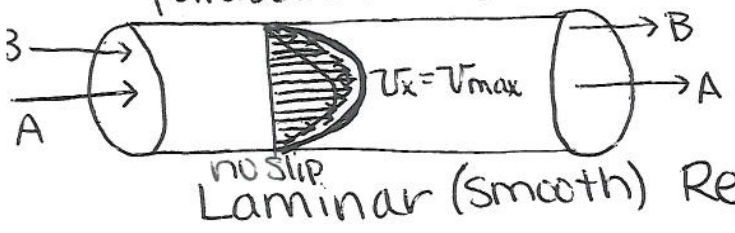 B
B
A
A
vx = vmax
no slip
Laminar (smooth) Re